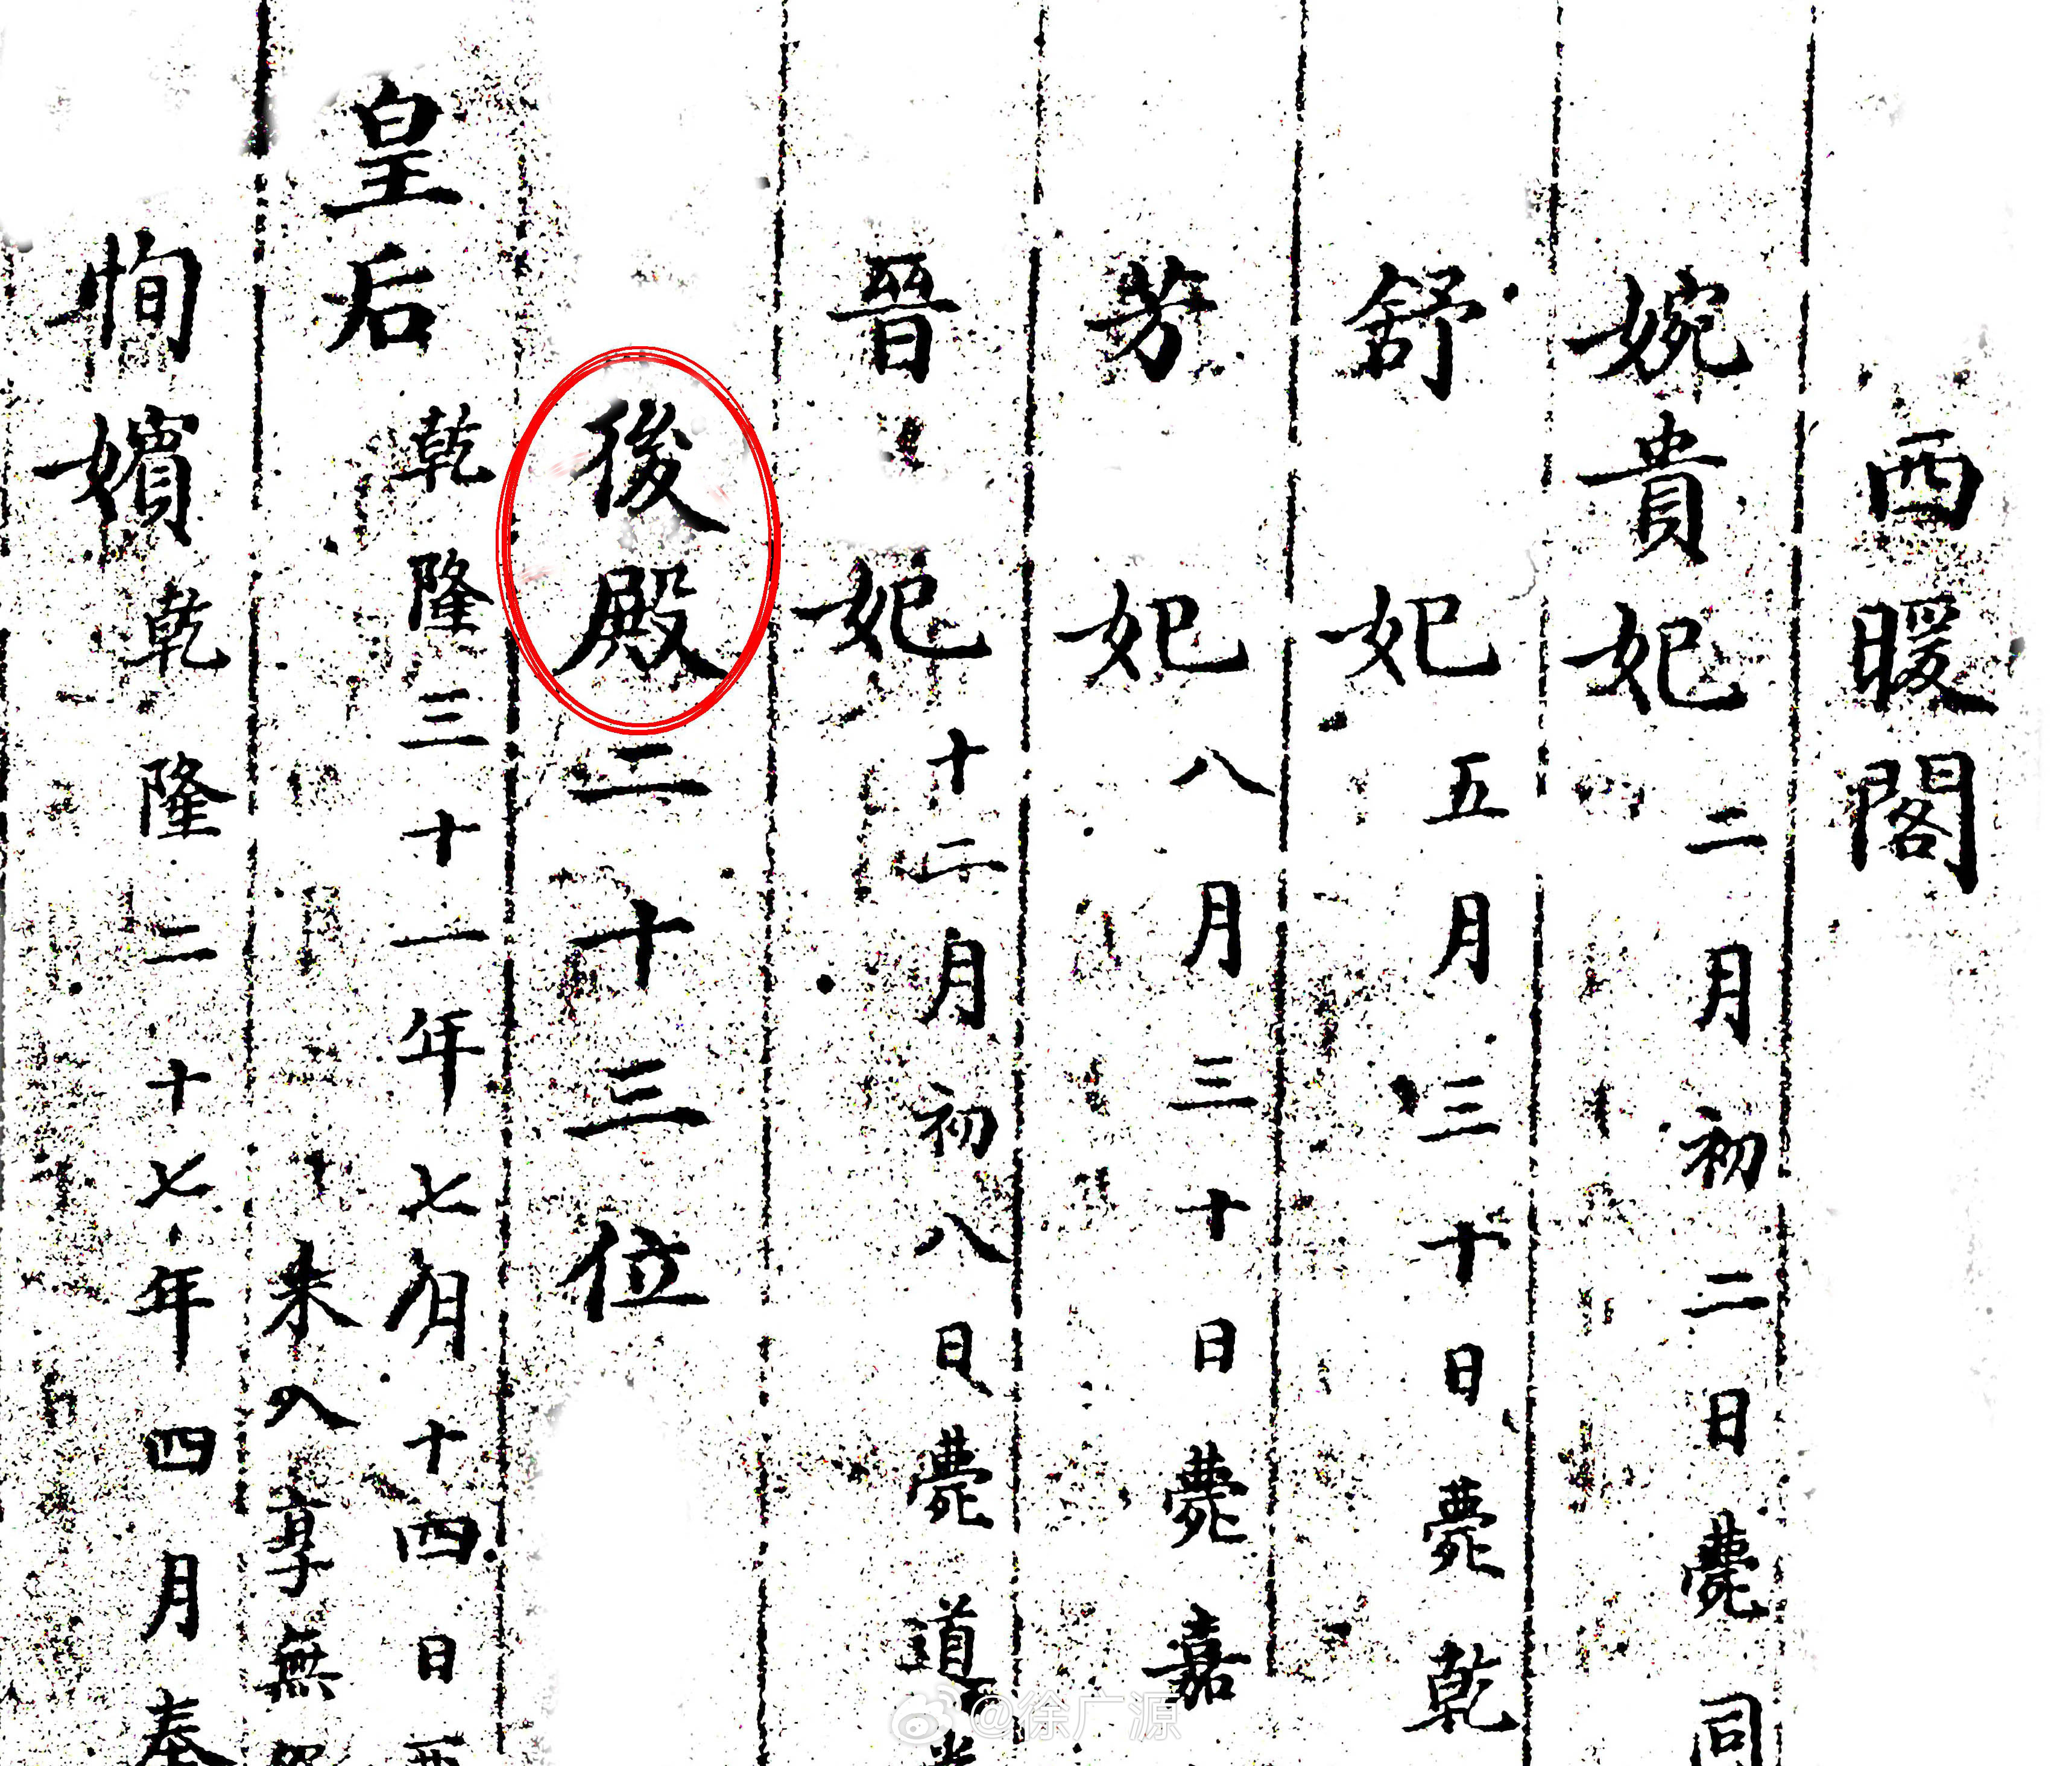 西暖閣
婉貴妃二月初二日薨同
舒妃五月三十日薨乾
芳妃八月三十日薨嘉
晉妃十二月初八日薨道光
後殿二十三位
皇后乾隆三十一年七月十四日
未入享無
恂嬪乾隆二十七年四月奉
@徐广源